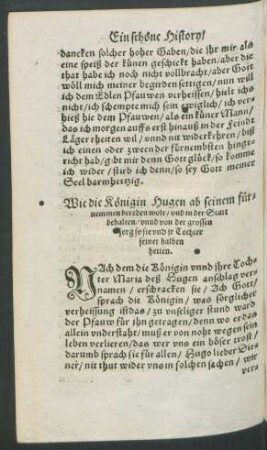 Ein schöne History/
dancken solcher hoher Gaben/die ihr mir als
eine speiß der künen geschickt haben/aber die
that habe ich noch nicht vollbracht/aber Gott
wöll mich meiner begirden settigen/nun will
ich dem Edlen Pfauwen verheissen/hielt ichs
nicht/ich schempte mich sein ewiglich/ich ver-
hieß hie dem Pfauwen/als ein küner Mann/
das ich morgen auff erst hinauß in der Feindt
Läger rheiten wil/vnnd nit widerkehren/biß
ich einen oder zween der fürnembsten hinge-
richt hab/gibt mir denn Gott glück/so komme
ich wider/stirb ich denn/so sey Gott meiner
Seel barmhertzig.
Wie die Königin Hugen ab seinem für-
nemmen bereden wolt/vnd in der Statt
behalten/vnnd von der grossen
sorg so sie vnd jr Tochter
seinet halben
hetten.
NAch dem die Königin vnnd ihre Toch-
ter Maria deß Hugen anschlag ver-
namen/erschracken sie/Ach Gott/
sprach die Königin/was sorglicher
verheissung ist das/zu vnseliger stund ward
der Pfauw für ihn getragen/denn wo er das
allein vnderstaht/muß er von noht wegen sein
leben verlieren/das wer vns ein böser trost/
darumb sprach sie für allen/Hugo lieber Die-
ner/nit thut wider vns in solchen sachen/wir
ver-